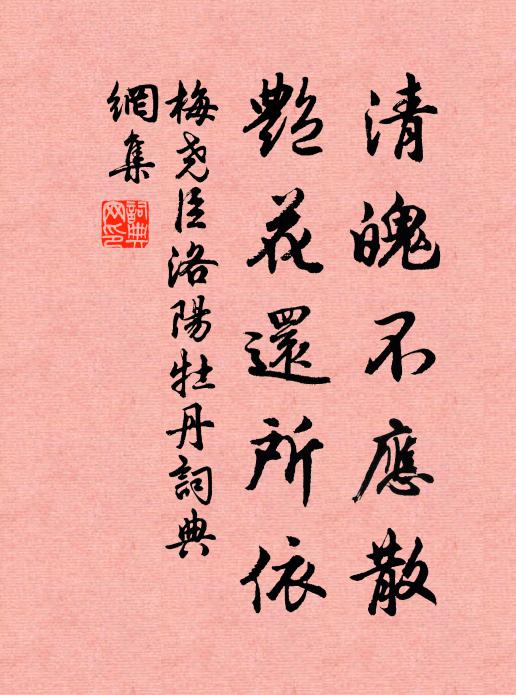 清魄不應散
艷花還所依
梅尧臣洛陽牡丹詞典
網集
詞典
網印